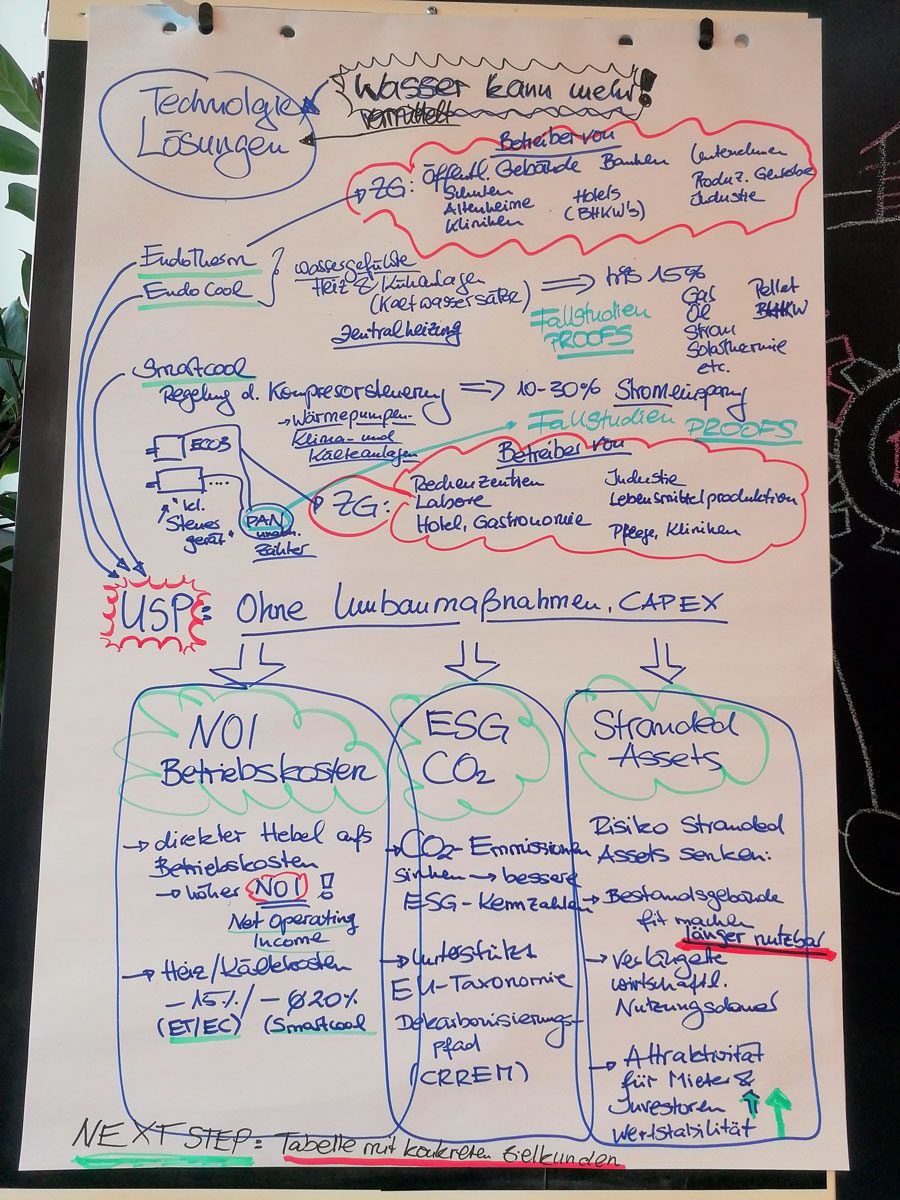 Technologie
Lösungen
Wasser kann mehr!
vermittelt
Betreiber von
ZG: Öffentl. Gebäude Banken Unternehmen
Schulen Hotels Produz. Gewerbe
Altenheime (BHKW's) Industrie
Kliniken
EndoTherm
EndoCool
wassergeführte
Heiz & Kühlanlagen
(Kaltwassersätze)
Zentralheizung
⇒ bis 15%
Gas Pellet
Öl BHKW
Strom
Solarthermie
etc.
Fallstudien
PROOFS
Smartcool
Regelung d. Kompresorsteuerung ⇒ 10-30% Stromeinsparung
→ Wärmepumpen
Klima- und
Kälteanlagen
Fallstudien PROOFS
ECO3
....
"kl.
Steuer
gerät"
PAN
Zähler
Betreiber von
ZG: Rechenzentren Industrie
Labore Lebensmittelproduktion
Hotel, Gastronomie Pflege, Kliniken
USP: Ohne Umbaumaßnahmen, CAPEX
NOI
Betriebskosten
→ direkter Hebel aufs
Betriebskosten
→ höher NOI !
Net Operating
Income
→ Heiz/Kältekosten
-15% / - Ø20%
(ET/EC) (Smartcool
ESG
CO2
→ CO2-Emmissionen
sinken → bessere
ESG-Kennzahlen
→ Unterstützt
EU-Taxonomie
Dekarbonisierungs-
pfad
(CRREM)
Stranded
Assets
Risiko Stranded
Assets senken:
→ Bestandsgebäude
fit machen
länger nutzbar
→ Verlängerte
wirtschaftl.
Nutzungsdauer
→ Attraktivität
für Mieter &
Investoren ↑
Wertstabilität ↑
NEXT STEP: Tabelle mit konkreten Zielkunden